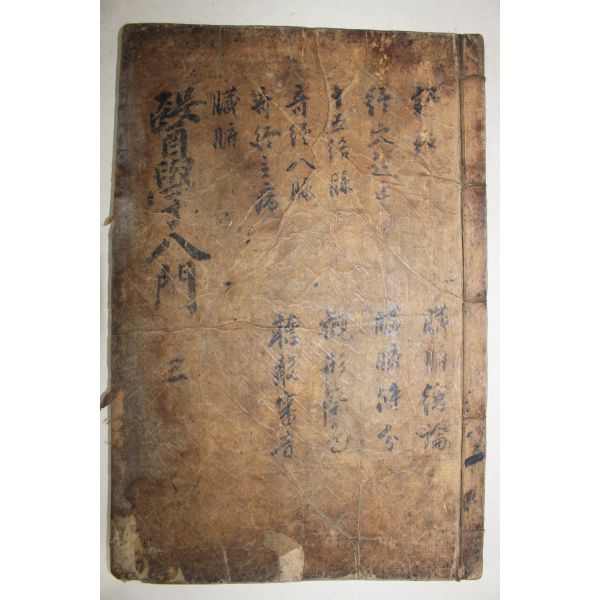 經穴起止
十五絡脉
奇經八脉
奇經主病
臟腑
臟腑總論
臟腑條分
觀形察色
聽聲審音
醫學入門 三